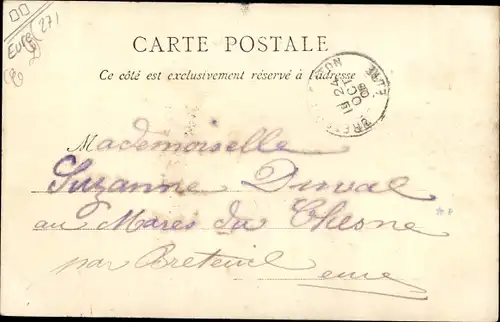 Eure (27)
CARTE POSTALE
Ce côté est exclusivement réservé à l'adresse
Mademoiselle
Suzanne Duval
au Mares du Chesne
par Breteuil
eure